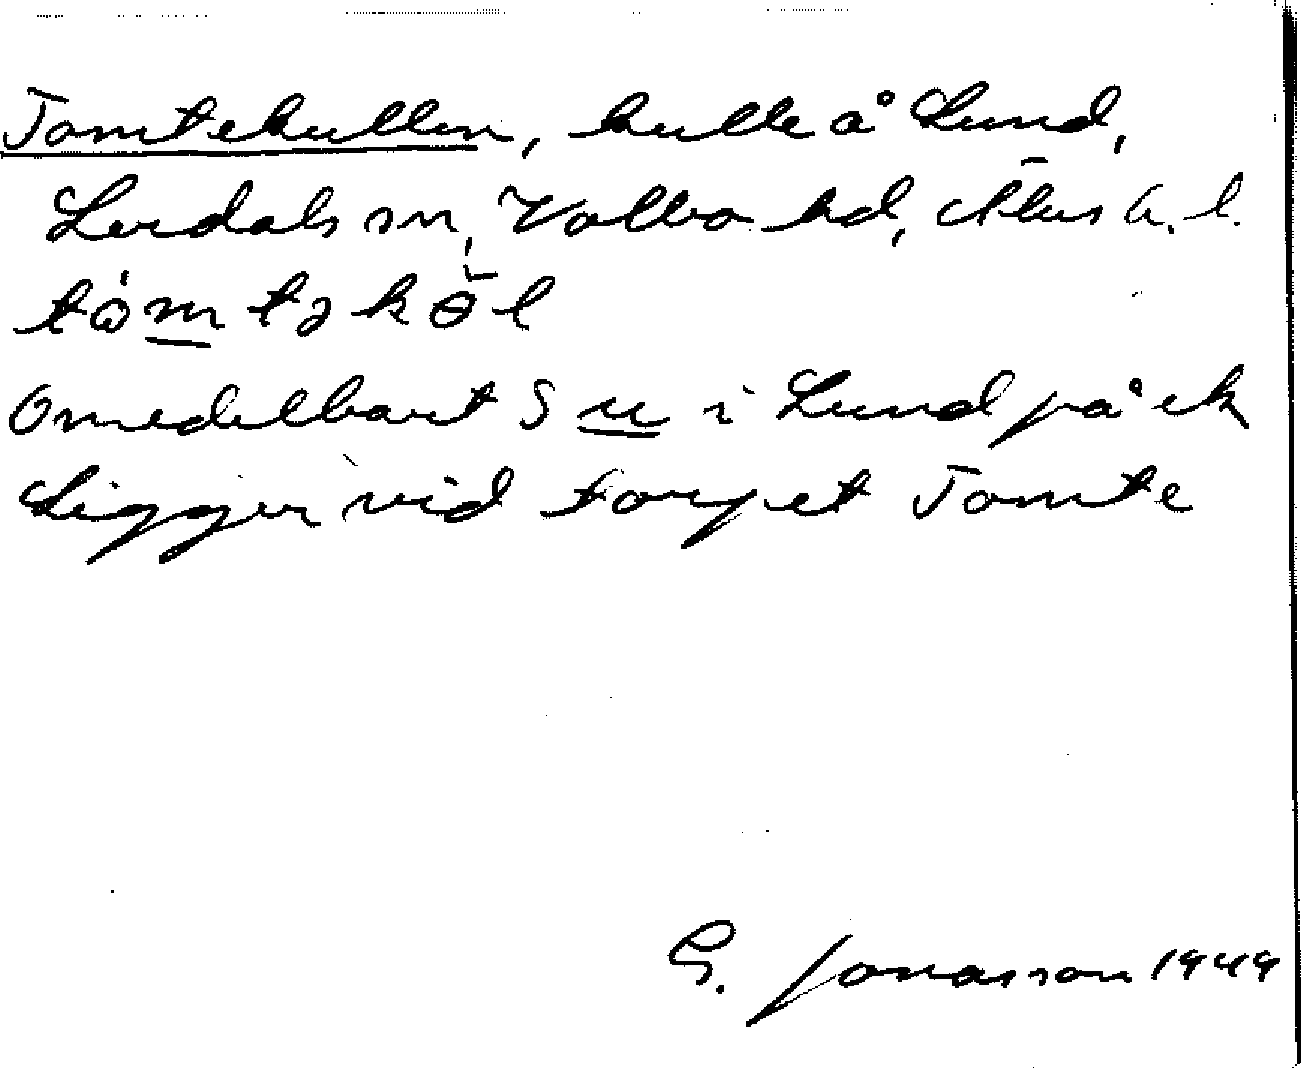 Tomtekullen, kulle å Lund,
Lerdals sn, Valbo hd, Älvs b. l.
tὰm tə kɵ̆l
Omedelbart S u i Lund på ek
Ligger vid torpet Tomte
G. Jonasson 1949